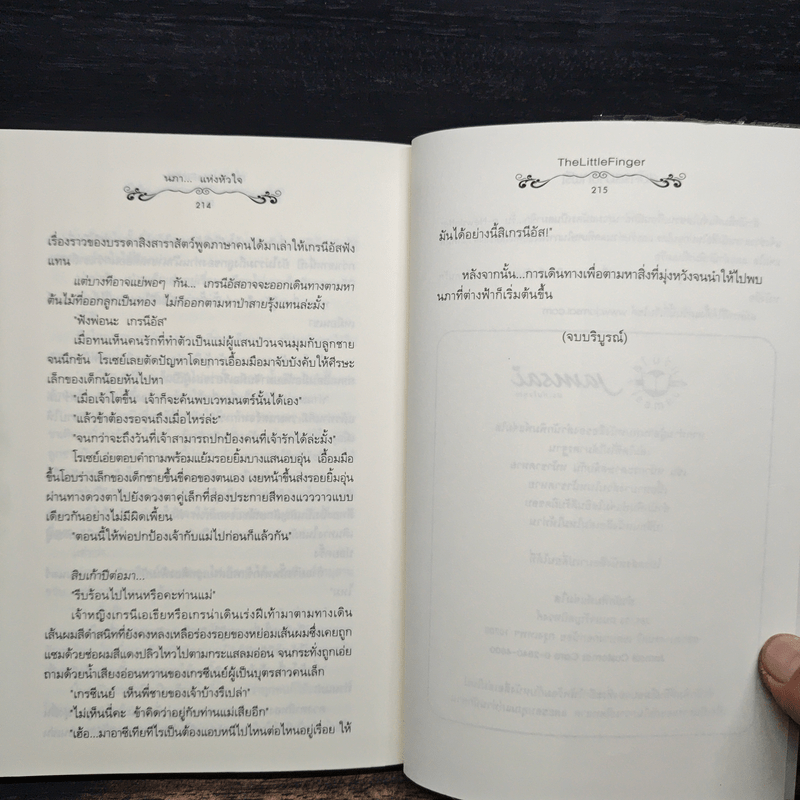 นภา... แห่งหัวใจ
214
เรื่องราวของบรรดาสิงสาราสัตว์พูดภาษาคนได้มาเล่าให้เกรนีอัสฟัง
แทน
แต่บางทีอาจแย่พอๆ กัน... เกรนีอัสอาจจะออกเดินทางตามหา
ต้นไม้ที่ออกลูกเป็นทอง ไม่ก็ออกตามหาป่าสายรุ้งแทนล่ะมั้ง
"ฟังพ่อนะ เกรนีอัส"
เมื่อทนเห็นคนรักที่ทำตัวเป็นแม่ผู้แสนป่วนจนมุมกับลูกชาย
จนนึกขัน โรเซย์เลยตัดปัญหาโดยการเอื้อมมือมาจับบังคับให้ศีรษะ
เล็กของเด็กน้อยหันไปหา
"เมื่อเจ้าโตขึ้น เจ้าก็จะค้นพบเวทมนตร์นั้นได้เอง"
"แล้วข้าต้องรอจนถึงเมื่อไหร่ล่ะ"
"จนกว่าจะถึงวันที่เจ้าสามารถปกป้องคนที่เจ้ารักได้ล่ะมั้ง"
โรเซย์เอ่ยตอบคำถามพร้อมแย้มรอยยิ้มบางแสนอบอุ่น เอื้อมมือ
ขึ้นโอบร่างเล็กของเด็กชายขึ้นขี่คอของตนเอง เงยหน้าขึ้นส่งรอยยิ้มอุ่น
ผ่านทางดวงตาไปยังดวงตาคู่เล็กที่ส่องประกายสีทองแวววาวแบบ
เดียวกันอย่างไม่มีผิดเพี้ยน
"ตอนนี้ให้พ่อปกป้องเจ้ากับแม่ไปก่อนก็แล้วกัน"
สิบเก้าปีต่อมา...
"รีบร้อนไปไหนหรือคะท่านแม่"
เจ้าหญิงเกรนีเอเธียหรือเกรน่าเดินเร่งฝีเท้ามาตามทางเดิน
เส้นผมสีดำสนิทที่ยังคงหลงเหลือร่องรอยของหย่อมเส้นผมซึ่งเคยถูก
แซมด้วยช่อผมสีแดงปลิวไหวไปตามกระแสลมอ่อน จนกระทั่งถูกเอ่ย
ถามด้วยน้ำเสียงอ่อนหวานของเกรซีเนย์ผู้เป็นบุตรสาวคนเล็ก
"เกรซีเนย์ เห็นพี่ชายของเจ้าบ้างรึเปล่า"
"ไม่เห็นนี่คะ ข้าคิดว่าอยู่กับท่านแม่เสียอีก"
"เฮ้อ...มาอาซีเทียทีไรเป็นต้องแอบหนีไปไหนต่อไหนอยู่เรื่อย ให้
TheLittleFinger
215
มันได้อย่างนี้สิเกรนีอัส!"
หลังจากนั้น...การเดินทางเพื่อตามหาสิ่งที่มุ่งหวังจนนำให้ไปพบ
นภาที่ต่างฟ้าก็เริ่มต้นขึ้น
(จบบริบูรณ์)